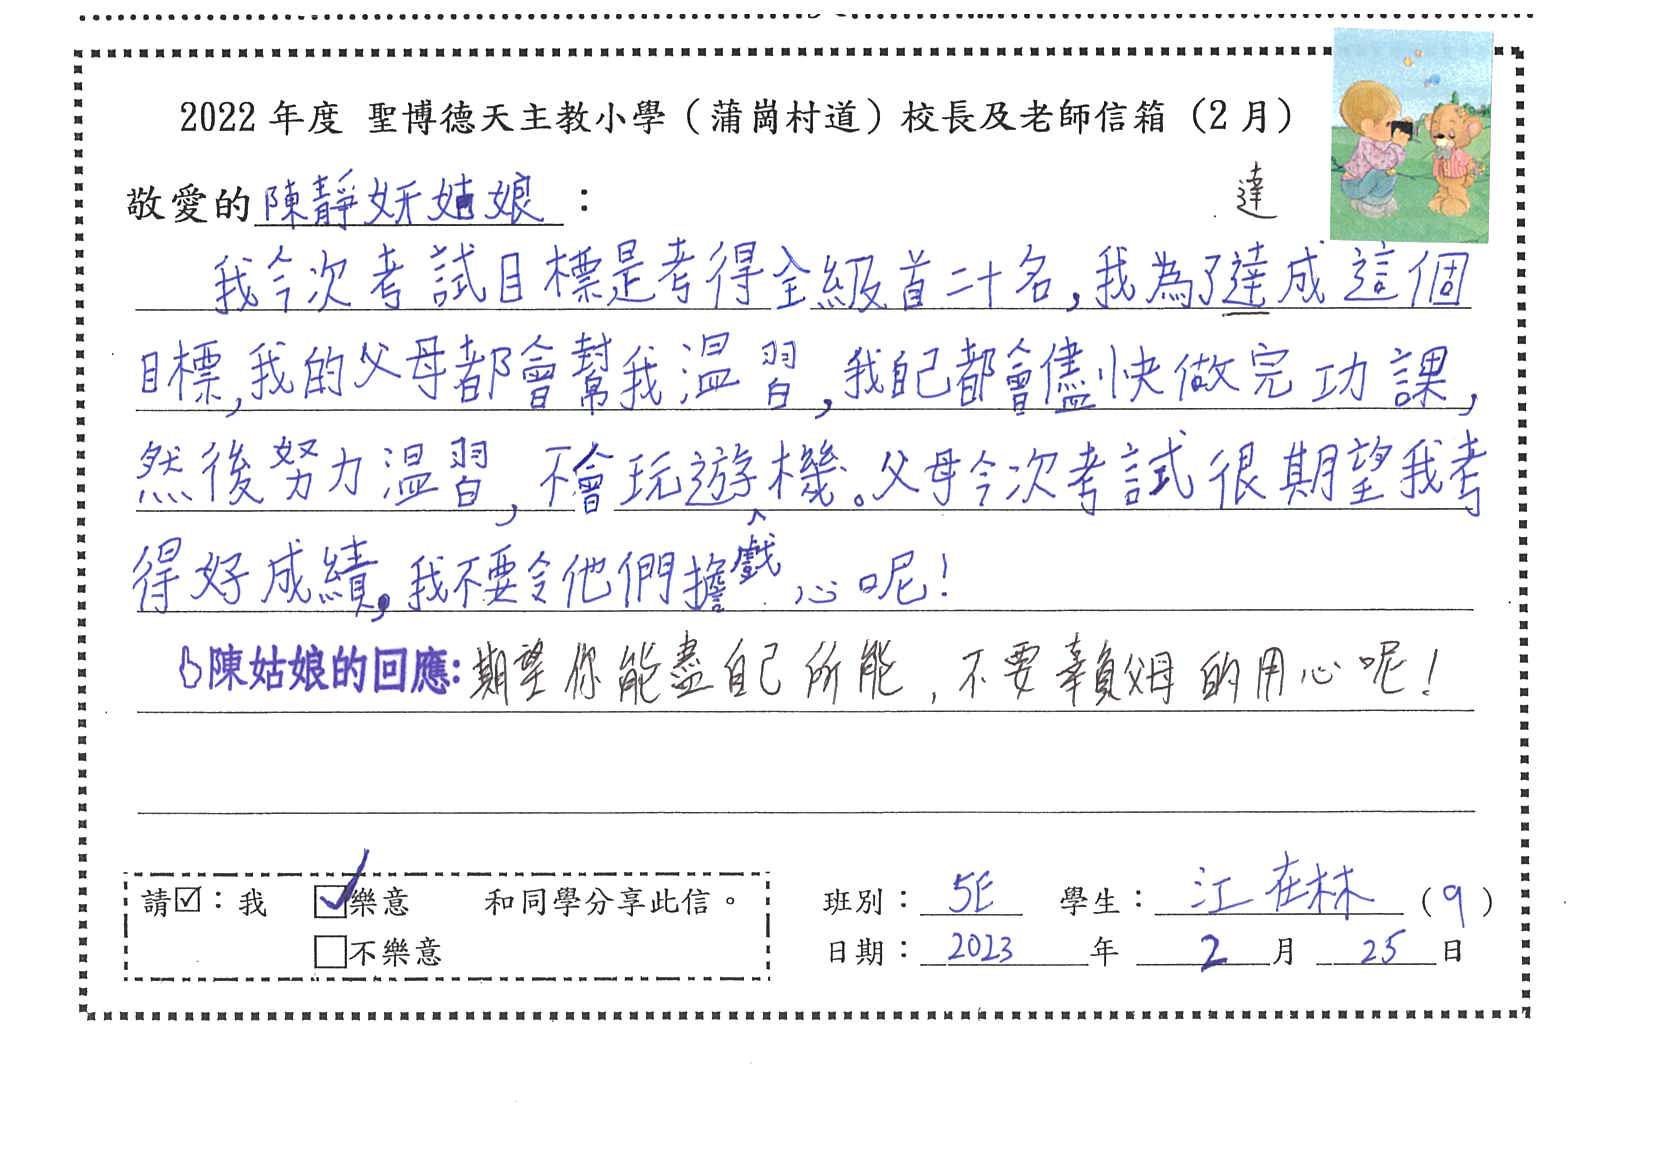 2022 年度 聖博德天主教小學（蒲崗村道）校長及老師信箱（2 月）
敬愛的陳靜妍姑娘：
達
我今次考試目標是考得全級首二十名,我為了達成這個
目標,我的父母都會幫我溫習,我自己都會儘快做完功課,
然後努力溫習,不會玩遊戲機。父母今次考試很期望我考
得好成績,我不要令他們擔心呢!
陳姑娘的回應:期望你能盡自己所能,不要辜負父母的用心呢!
請☑：我 ☑樂意 和同學分享此信。
□不樂意
班別：5E 學生：江在林（9）
日期：2023年2月25日